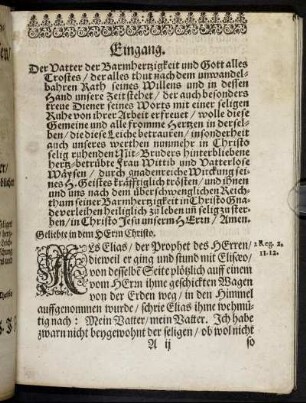 Eingang.
Der Vatter der Barmhertzigkeit und Gott alles
Trostes / der alles thut nach dem unwandel-
bahren Rath seines Willens und in dessen
Hand unsere Zeit stehet / der auch besonders
treue Diener seines Worts mit einer seligen
Ruhe von ihrer Arbeit erfreuet / wolle diese
Gemeine und alle fromme Hertzen in dersel-
ben / die diese Leiche betrauren / insonderheit
auch unseres werthen nunmehr in Christo
selig ruhenden Mit-Brudets hinterbliebene
hertz-betrübte Frau Witrib und Vatterlose
Wäysen / durch gnadenreiche Wirckung sei-
nes H. Geistes kräfftiglich trösten / und ihnen
und uns nach dem überschwenglichen Reich-
tham seiner Barmhertzigkeit in Christo Gna-
de verleihen heiliglich zu leben uñ selig zu ster-
ben / in Christo Jesu unserm HErrn / Amen.
Geliebte in dem HErrn Christo.
ALs Elias / der Prophet des HErren /
dieweil er ging und stund mit Elisæo /
von desselbē Seite plötzlich auff einem
vom HErrn ihme geschickten Wagen
von der Erden weg / in den Himmel
auffgenommen wurde / schrie Elias ihme wehmü-
tig nach: Mein Vatter / mein Vatter. Ich habe
zwarn nicht beygewohnt der seligen / ob wol nicht
A ij
so
2 Reg. 2.
11. 12.